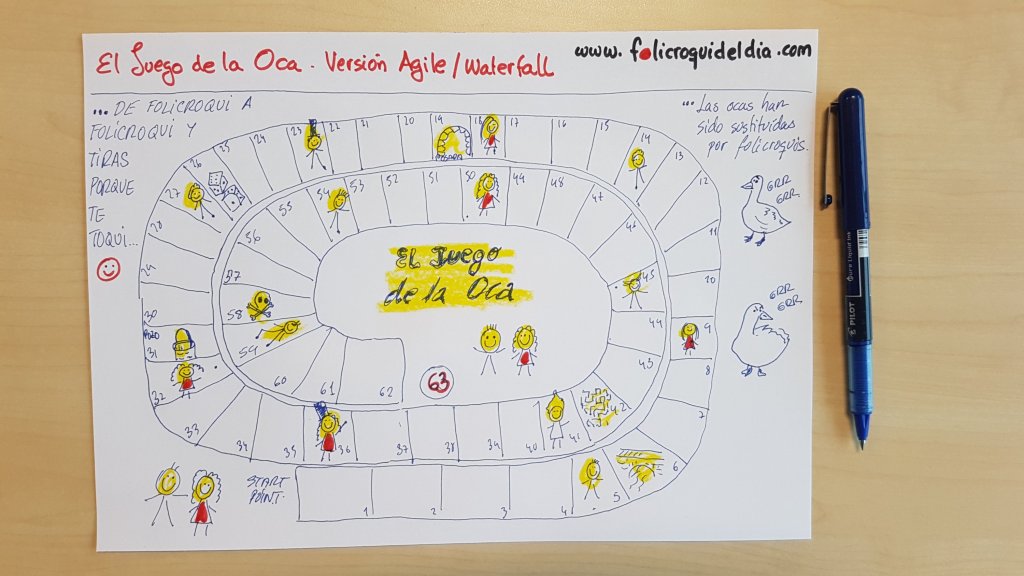 El Juego de la Oca. Versión Agile/Waterfall
www.folicroquideldia.com
... DE FOLICROQUI A
FOLICROQUI Y
TIRAS
PORQUE
TE
TOQUI...
... Las ocas han
sido sustituidas
por folicroquis.
GRR
GRR.
GRR
GRR.
EL JUEGO
de la Oca
63
START
POINT.
1
2
3
4
5
6
7
8
9
10
11
12
13
14
15
16
17
18
19
POSADA
20
21
22
23
24
25
26
27
28
29
30
POZO
31
32
33
34
35
36
37
38
39
40
41
42
43
44
45
46
47
48
49
50
51
52
53
54
55
56
57
58
59
60
61
62
PILOT